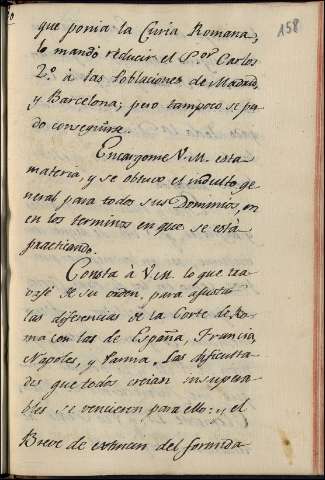 158
que ponia la Curia Romana,
lo mandó reducir el S.or Carlos
2.º à las Poblaciones de Madrid,
y Barcelona; pero tampoco se pu-
do conseguir.
Encargome V. M. esta
materia, y se obtuvo el indulto ge-
neral para todos sus Dominios, en
en los terminos en que se està
practicando.
Consta à V. M. lo que tra-
vajé de su orden, para ajustar
las diferencias de la Corte de Ro-
ma con las de España, Francia,
Napoles, y Parma. Las dificulta-
des que todos creian insupera-
bles se vencieron para ello: y el
Breve de extincion del formida-